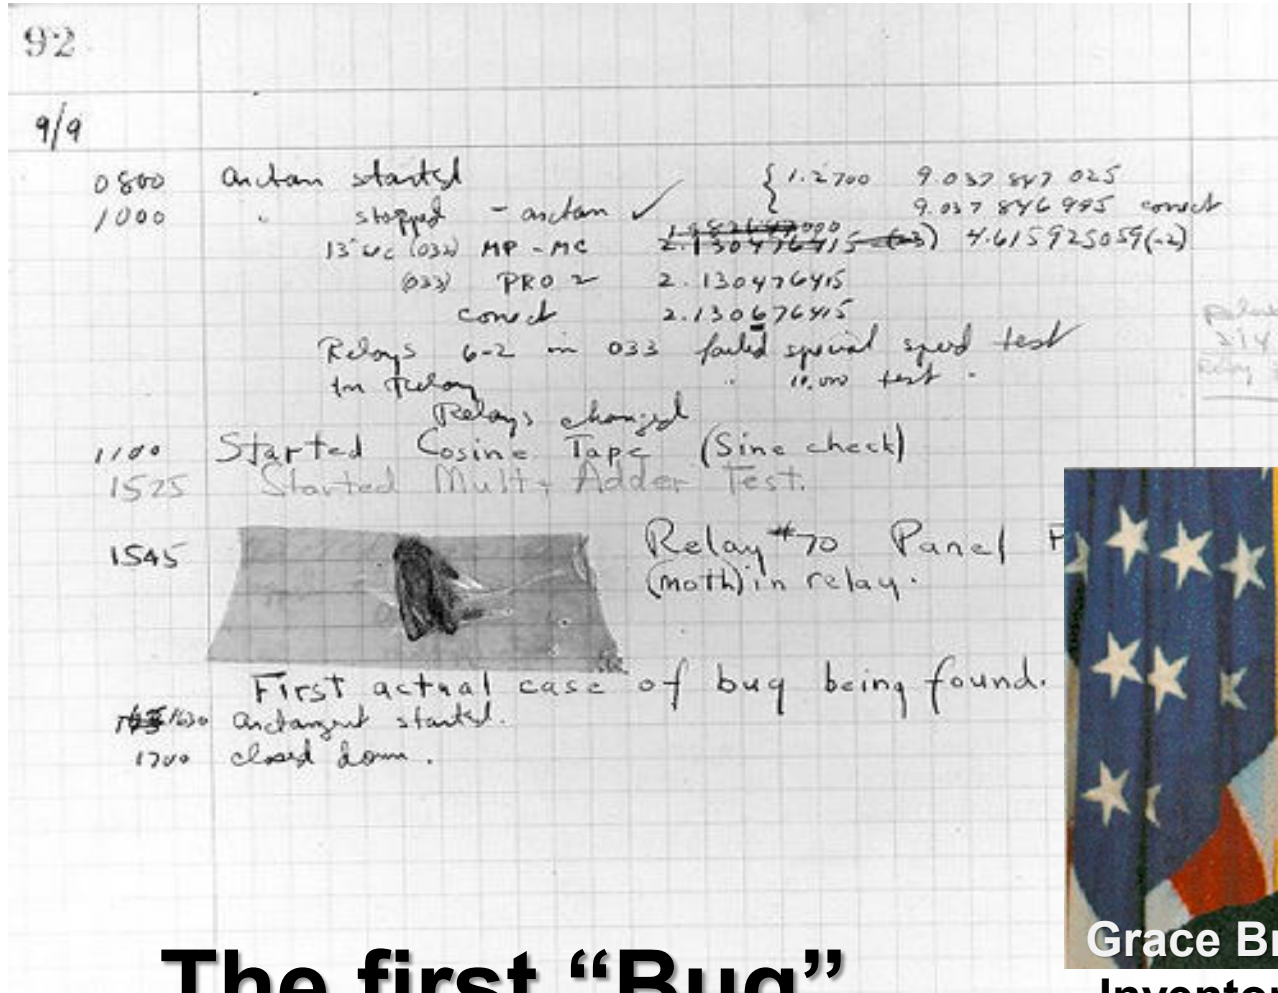 92
9/9
0800 arctan started { 1.2700 9.037 847 025
1000 " stopped - arctan ✓ 9.037 846 995 correct
13"uc (032) MP - MC 2.130476415 (-3) 4.615925059(-2)
(033) PRO 2 2.130476415
correct 2.130676415
Relays 6-2 in 033 failed special speed test
in Relay " 10.000 test .
Relays changed
1100 Started Cosine Tape (Sine check)
1525 Started Mult + Adder Test.
1545 Relay #70 Panel F
(moth) in relay.
First actual case of bug being found.
1630 arctangent started.
1700 closed down.
Grace Br
The first “Bug”
Inventor